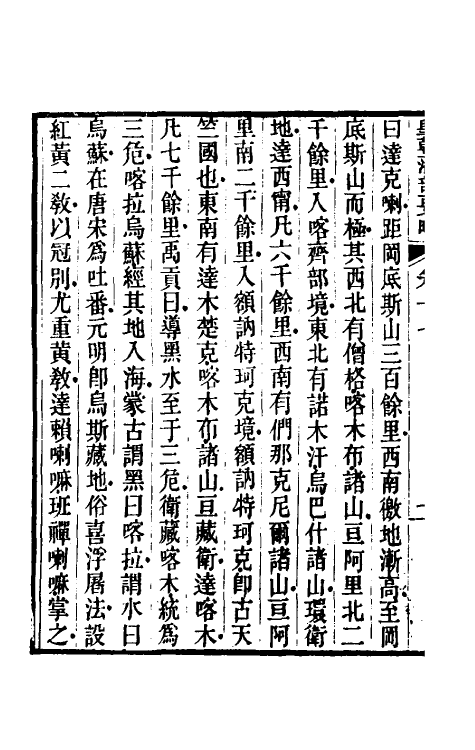 曰達克喇距岡底斯山三百餘里西南徼地漸高至岡
底斯山而極其西北有僧格喀木布諸山亘阿里北二
千餘里入喀齊部境東北有諾木汗烏巴什諸山環衛
地達西南凡六千餘里西南有們那克尼爾諸山亘阿
里南二千餘里入額訥特珂克境額訥特珂克卽古天
竺國也東南有達木楚克喀木布諸山亘藏衛達喀木
凡七千餘里禹貢曰導黑水至于三危衛藏喀木統為
三危喀拉烏蘇經其地入海蒙古謂黑曰喀拉謂水曰
烏蘇在唐宋為吐番元明卽烏斯藏地俗喜浮屠法設
紅黃二教以冠別尤重黃教達賴喇嘛班禪喇嘛掌之